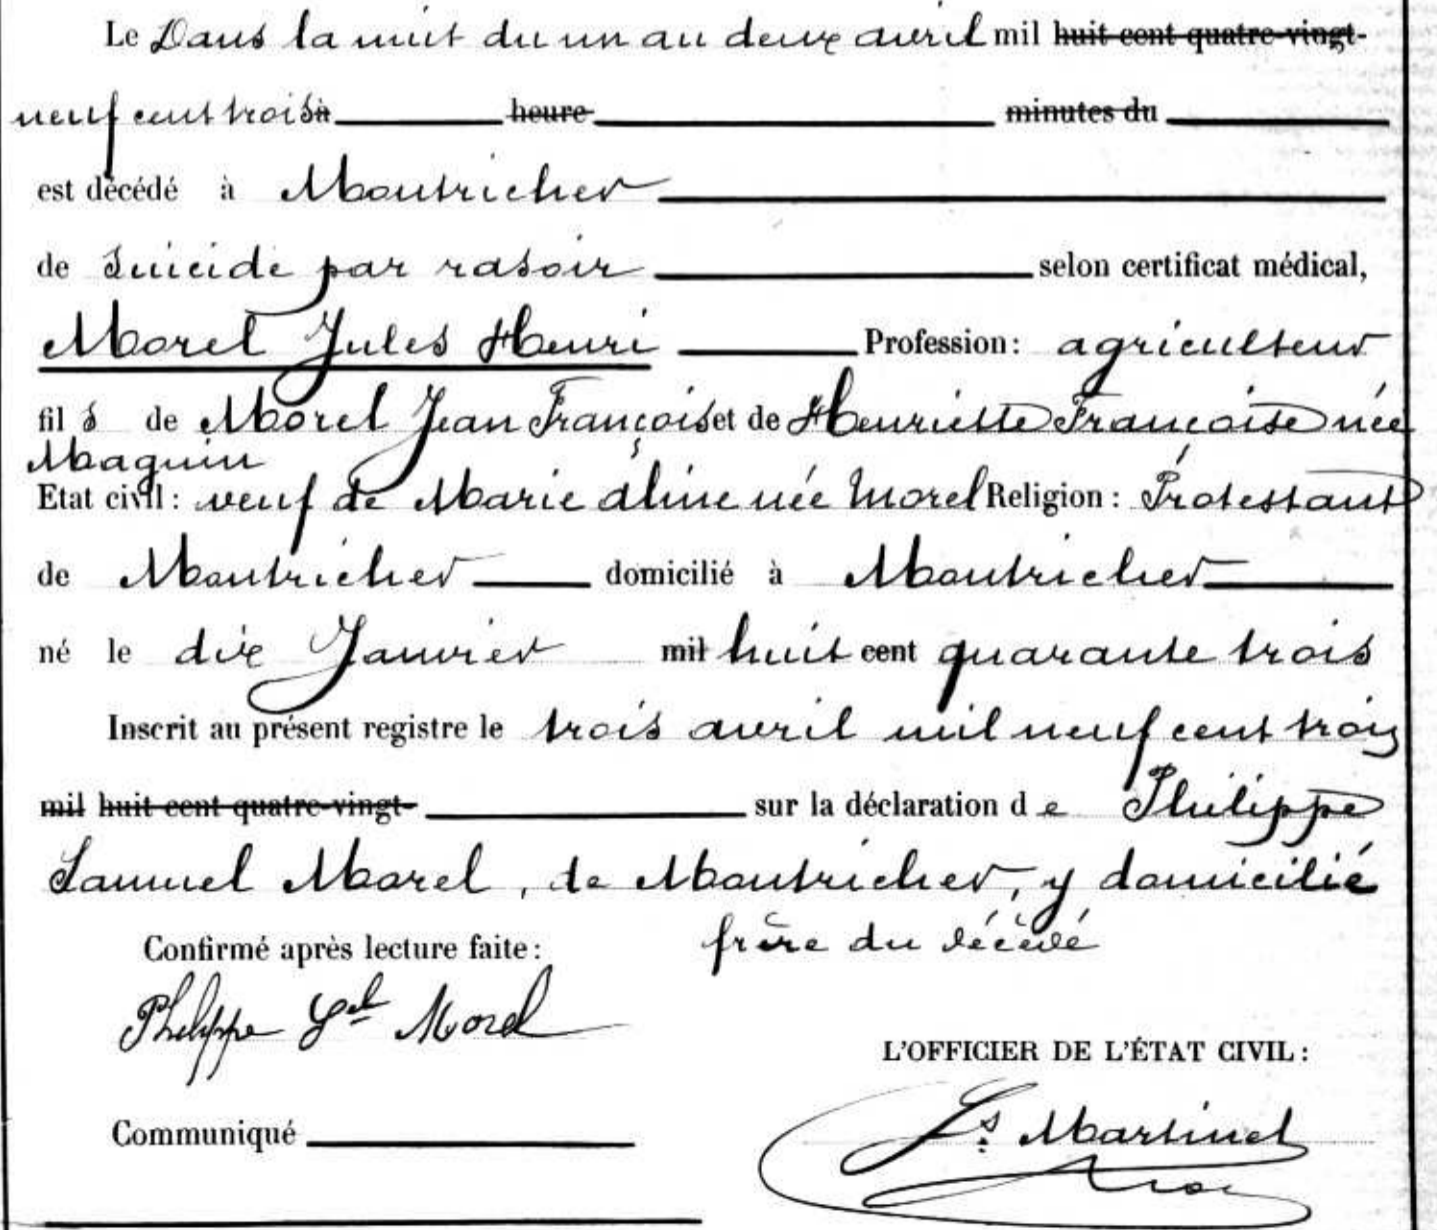 Le Dans la nuit du un au deux avril mil huit cent quatre-vingt-
neuf cent trois à heure minutes du
est décédé à Montricher
de Suicide par rasoir selon certificat médical,
Morel Jules Henri Profession: agriculteur
fils de Morel Jean François et de Henriette Françoise née
Maguin
Etat civil: veuf de Marie Aline née Morel Religion: Protestant
de Montricher domicilié à Montricher
né le dix Janvier mil huit cent quarante trois
Inscrit au présent registre le trois avril mil neuf cent trois
mil huit cent quatre-vingt- sur la déclaration de Philippe
Samuel Morel, de Montricher, y domicilié
frère du décédé
Confirmé après lecture faite:
Philippe Sel Morel
L'OFFICIER DE L'ÉTAT CIVIL:
Communiqué
Ls Martinet